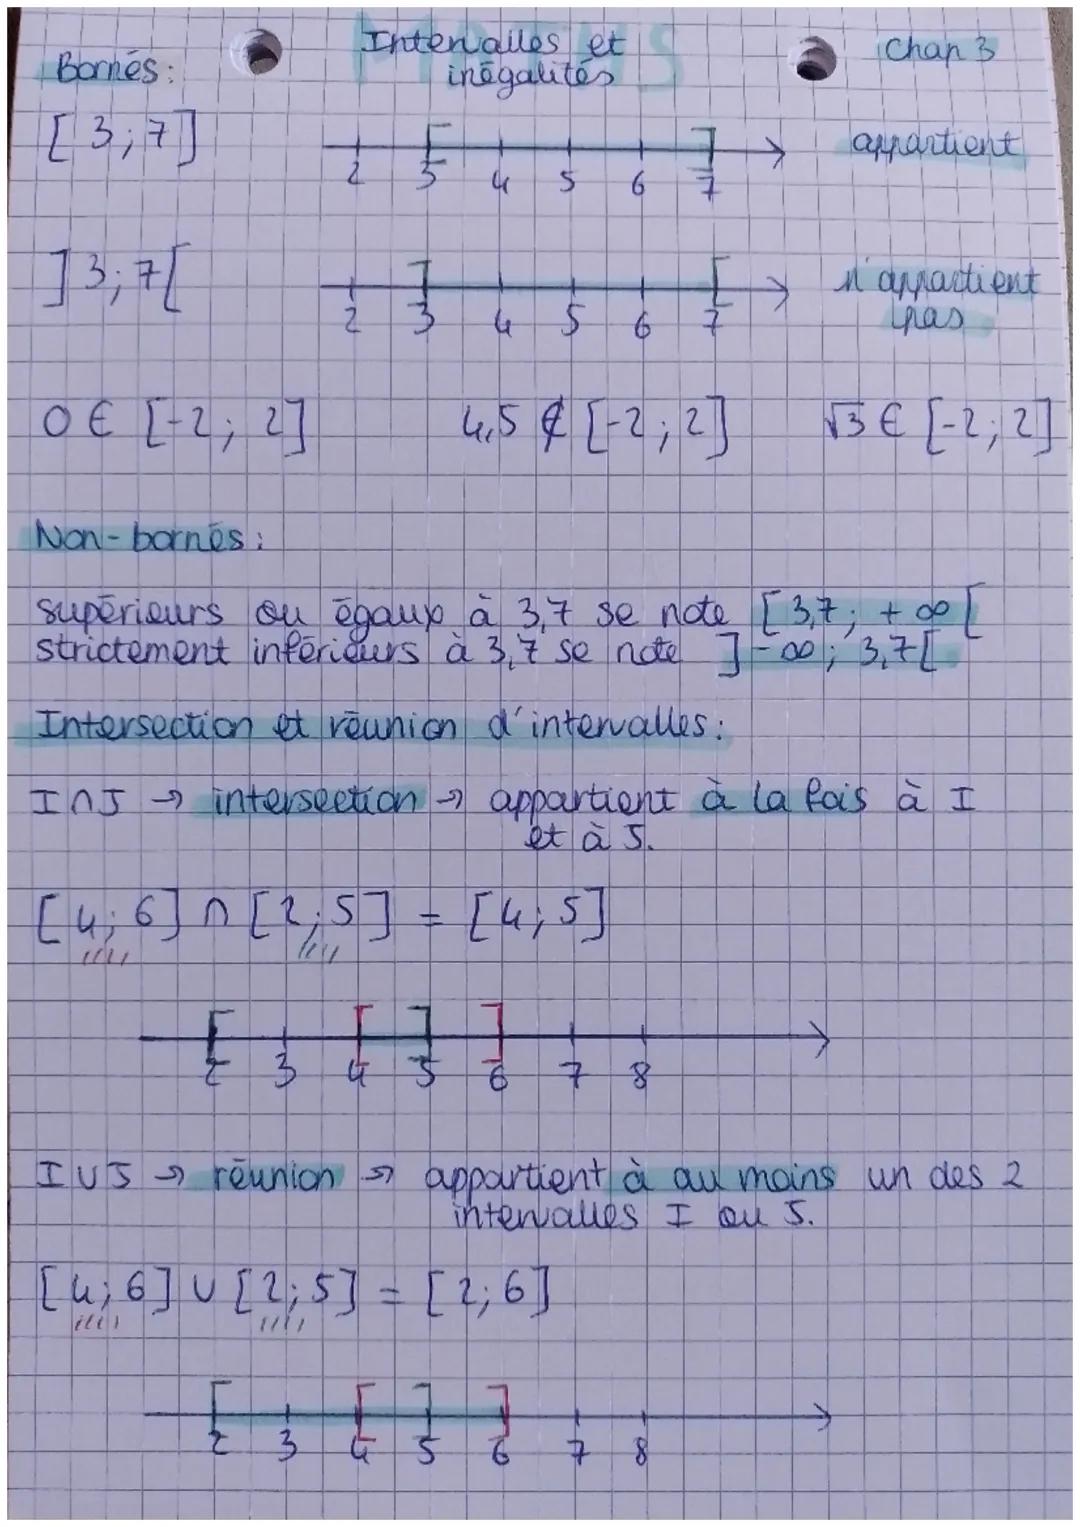 MATHS
Intervalles et
inégalités
Chap 3
Bornés :
[3 ; 7]
2 3 4 5 6 7
appartient
]3 ; 7[
2 3 4 5 6 7
n'appartient
pas
0 ∈ [-2 ; 2]
4,5 ∉ [-2 ; 2]
√3 ∈ [-2 ; 2]
Non-bornés :
supérieurs ou égaux à 3,7 se note [3,7 ; +∞[
strictement inférieurs à 3,7 se note ]-∞ ; 3,7[
Intersection et réunion d'intervalles :
I∩J → intersection → appartient à la fois à I
et à J.
[4 ; 6] ∩ [2 ; 5] = [4 ; 5]
2 3 4 5 6 7 8
I∪J → réunion → appartient à au moins un des 2
intervalles I ou J.
[4 ; 6] ∪ [2 ; 5] = [2 ; 6]
2 3 4 5 6 7 8